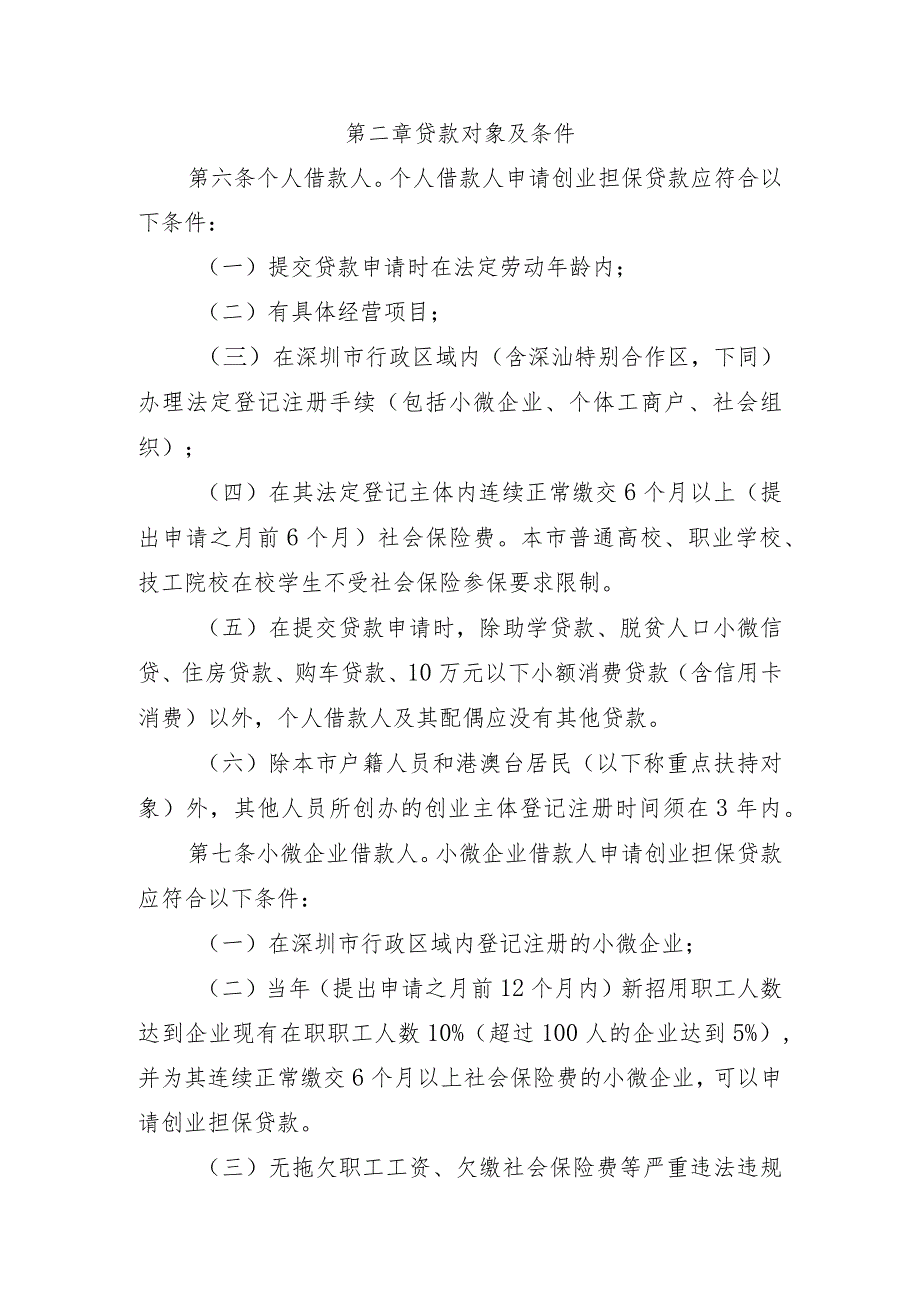 第二章贷款对象及条件
第六条个人借款人。个人借款人申请创业担保贷款应符合以
下条件：
（一）提交贷款申请时在法定劳动年龄内；
（二）有具体经营项目；
（三）在深圳市行政区域内（含深汕特别合作区，下同）
办理法定登记注册手续（包括小微企业、个体工商户、社会组
织）；
（四）在其法定登记主体内连续正常缴交6个月以上（提
出申请之月前6个月）社会保险费。本市普通高校、职业学校、
技工院校在校学生不受社会保险参保要求限制。
（五）在提交贷款申请时，除助学贷款、脱贫人口小微信
贷、住房贷款、购车贷款、10万元以下小额消费贷款（含信用卡
消费）以外，个人借款人及其配偶应没有其他贷款。
（六）除本市户籍人员和港澳台居民（以下称重点扶持对
象）外，其他人员所创办的创业主体登记注册时间须在3年内。
第七条小微企业借款人。小微企业借款人申请创业担保贷款
应符合以下条件：
（一）在深圳市行政区域内登记注册的小微企业；
（二）当年（提出申请之月前12个月内）新招用职工人数
达到企业现有在职职工人数10%（超过100人的企业达到5%），
并为其连续正常缴交6个月以上社会保险费的小微企业，可以申
请创业担保贷款。
（三）无拖欠职工工资、欠缴社会保险费等严重违法违规